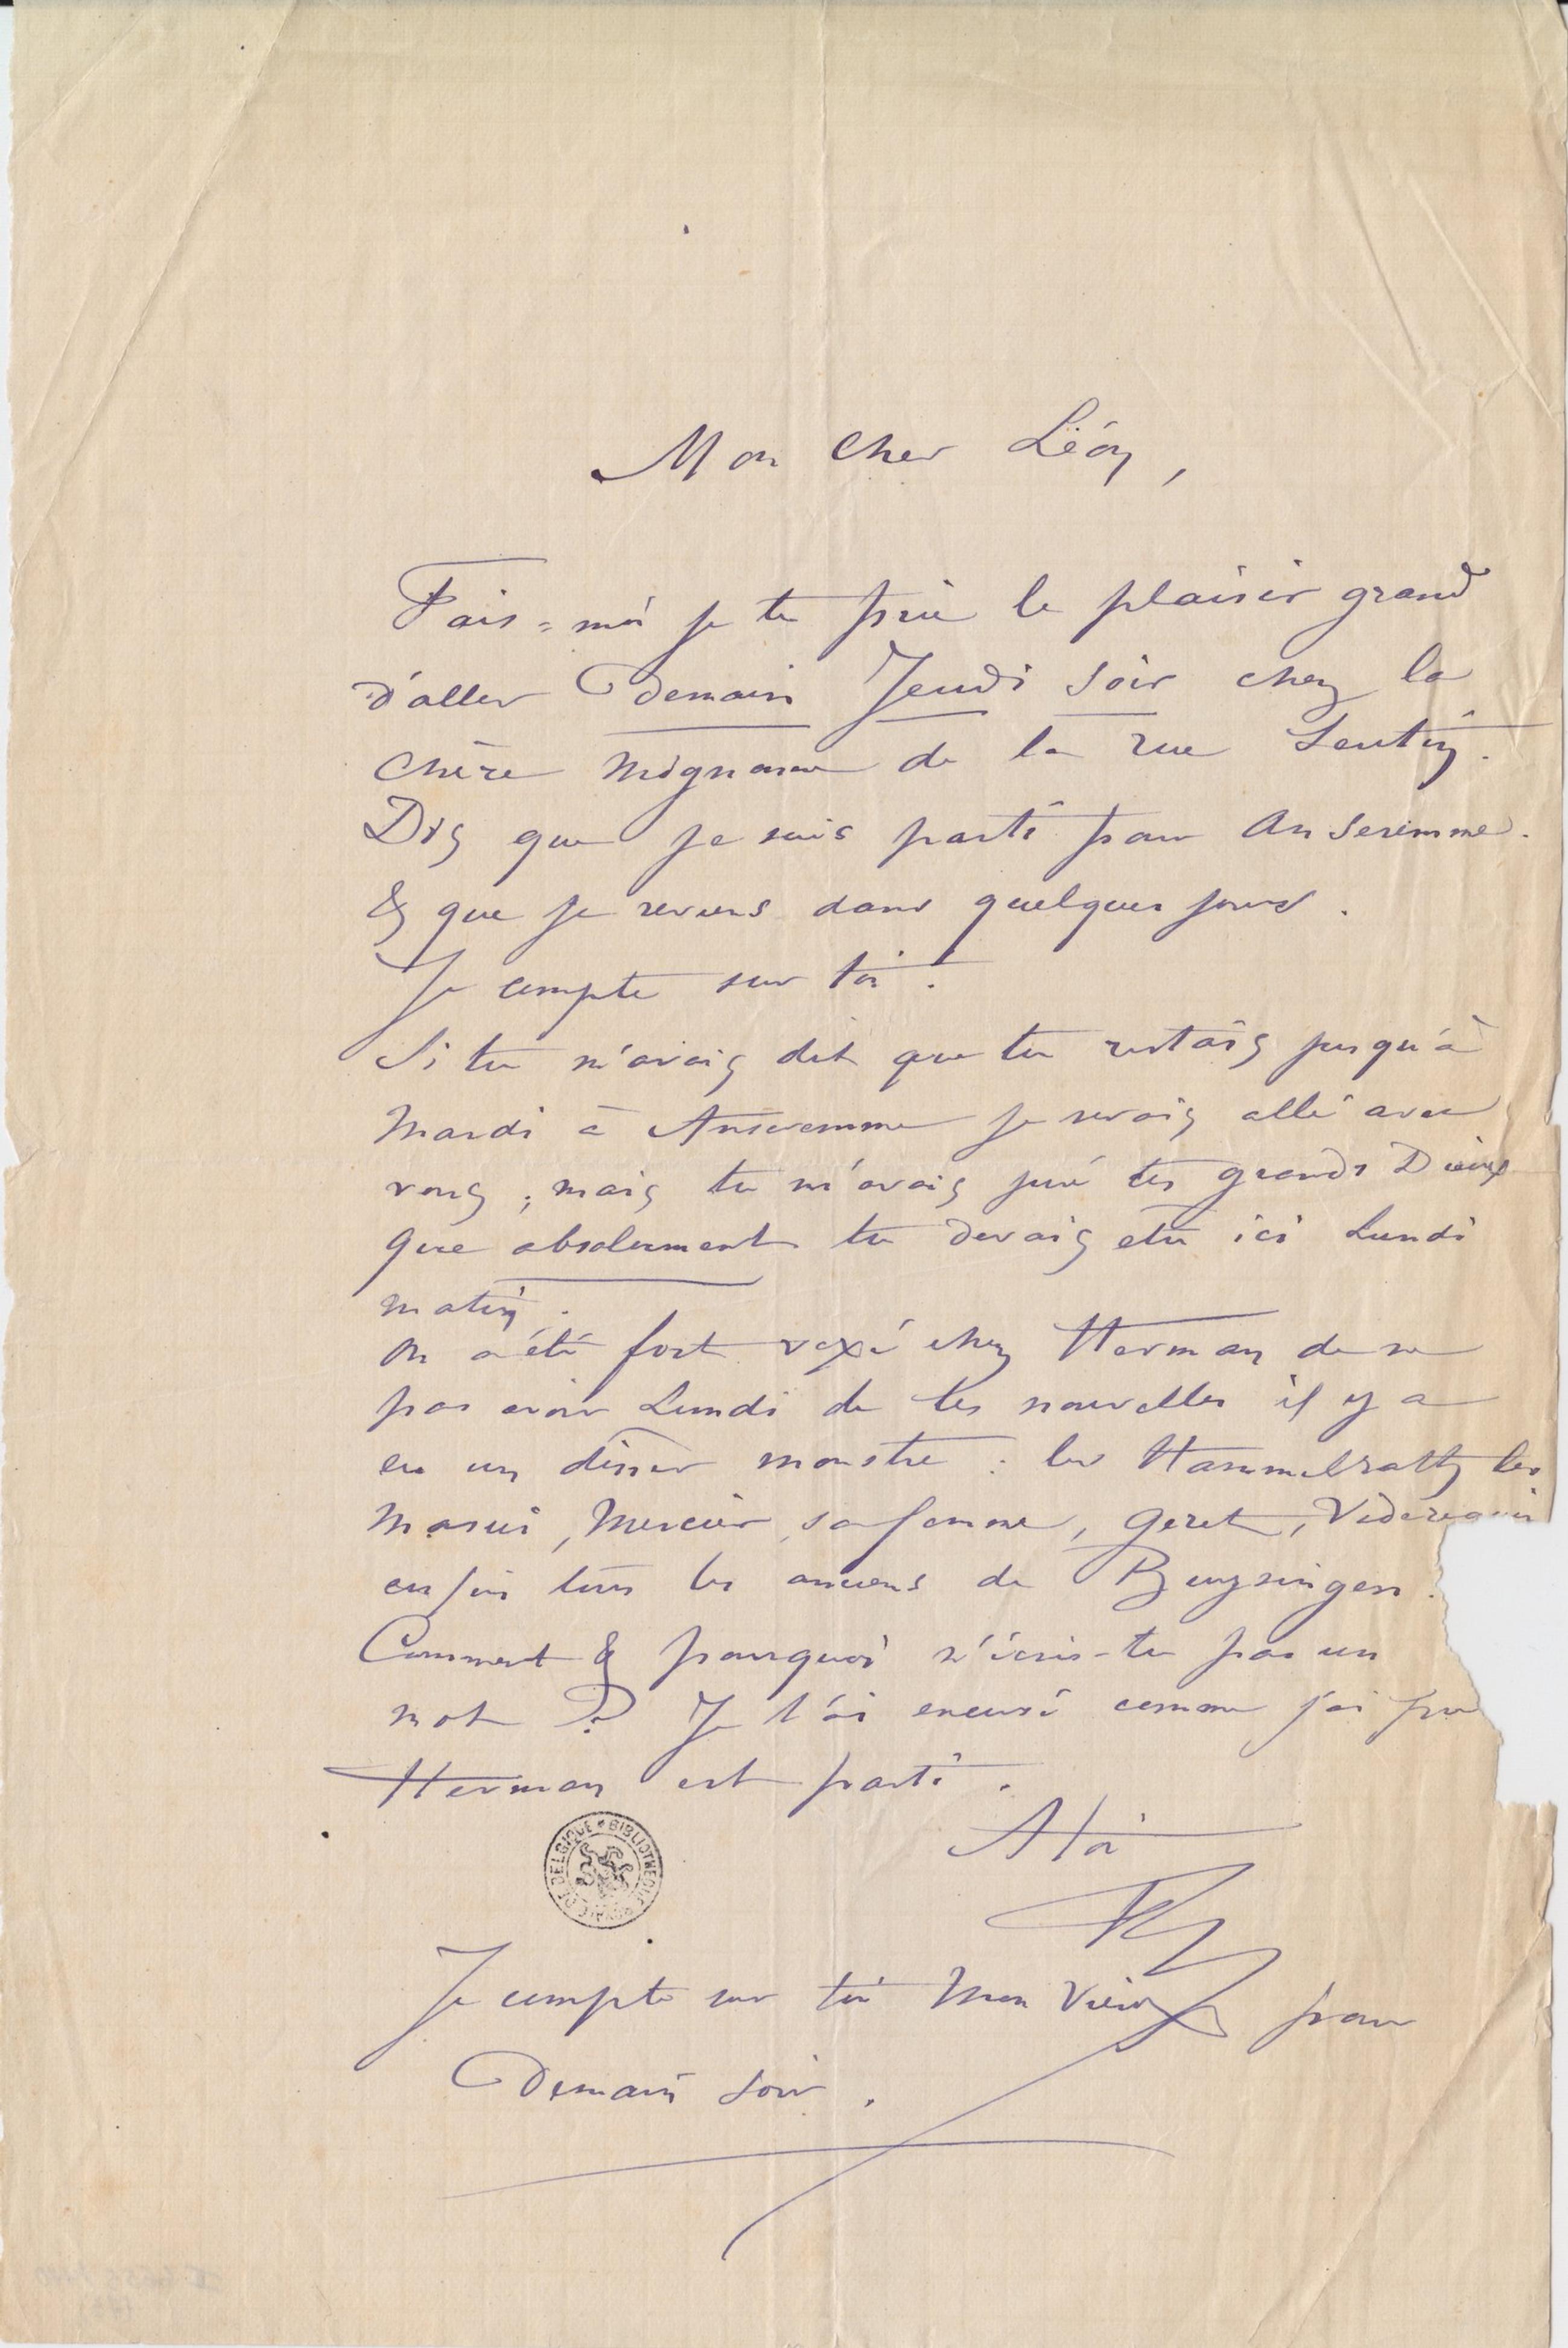 Mon cher Léon,
Fais-moi je te prie le plaisir grand
d'aller Demain Jeudi soir chez la
chère mignonne de la rue Seutin.
Dis que je suis parti pour Anseremme.
& que je reviens dans quelques jours.
Je compte sur toi.
Si tu m'avais dit que tu restais jusqu'à
Mardi à Anseremme je serais allé avec
vous, mais tu m'avais juré tes grands Dieux
que absolument tu devais etre ici Lundi
matin.
On a été fort vexé chez Herman de ne
pas avoir Lundi de tes nouvelles il y a
eu un dîner monstre : les Hammelrath les
Masui, Mercier, sa femme, Geret,
enfin tous les anciens de Buysingen.
Comment & pourquoi n'écris-tu pas un
mot ? Je t'ai excusé comme j'ai pu
Herman est parti.
A toi
BIBLIOTHEQUE ROYALE DE BELGIQUE
Je compte sur toi Mon Vieux pour
Demain soir.